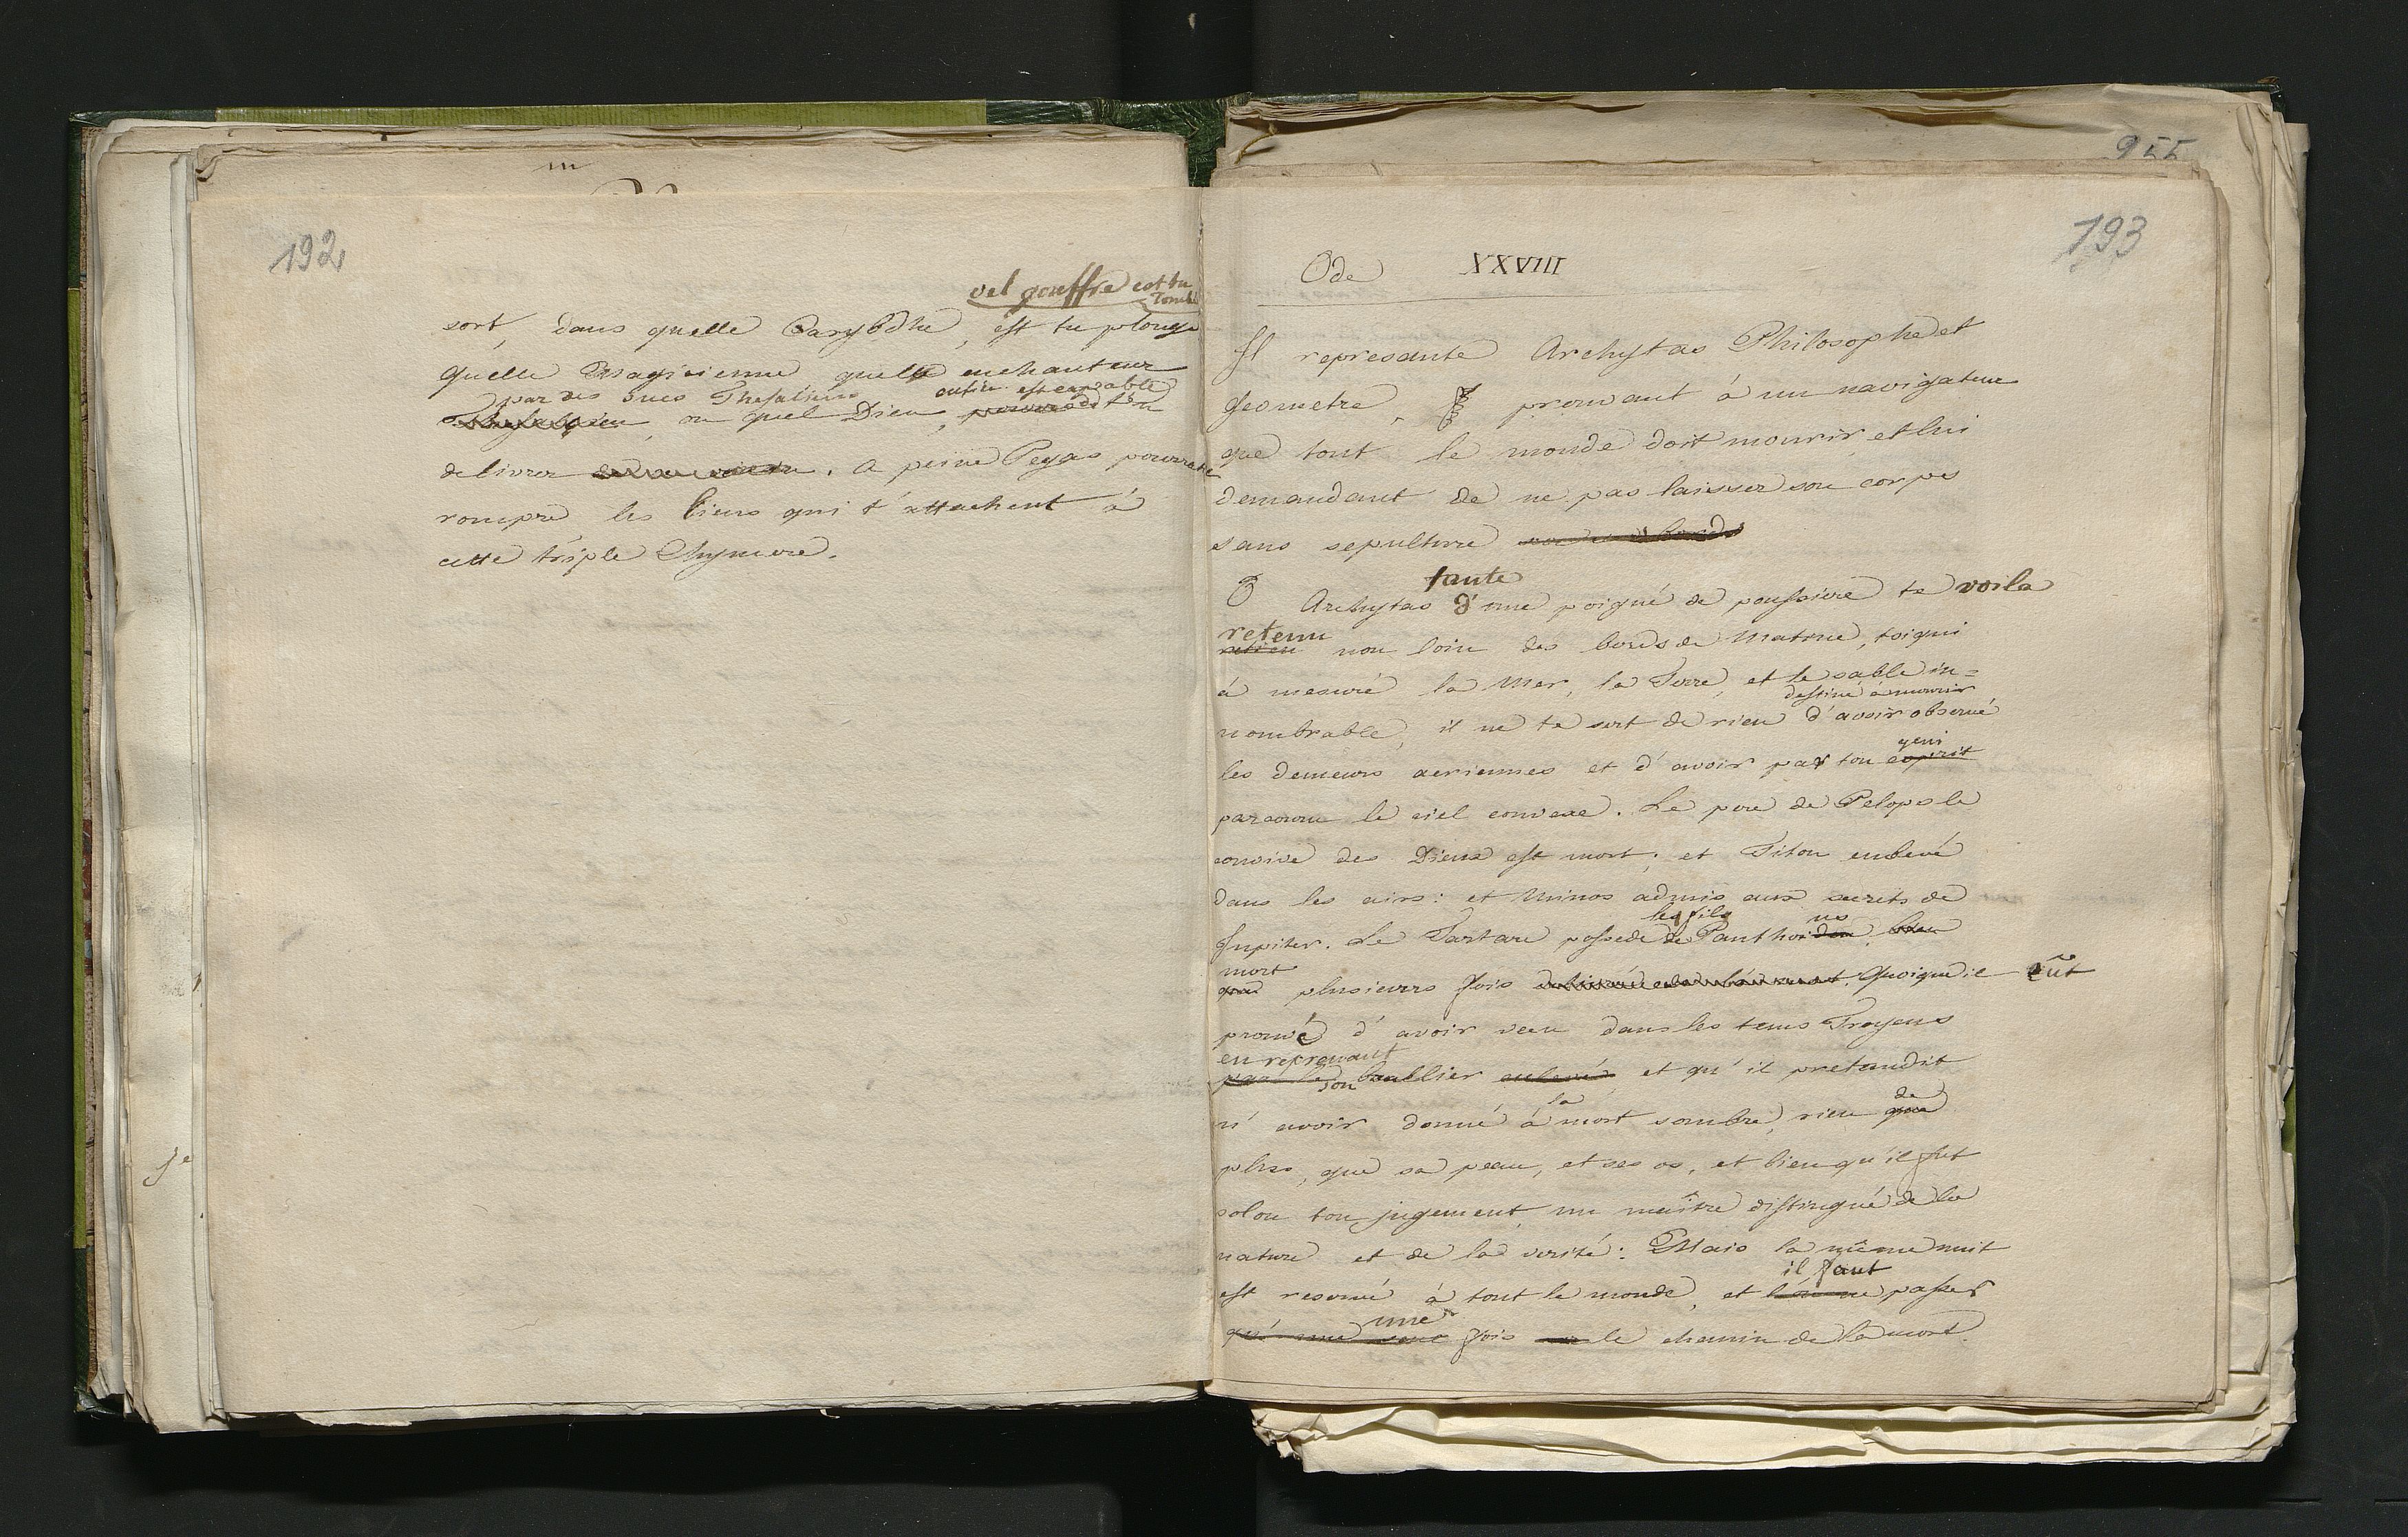 192
vel gouffre est tu
tombé
sort, dans quelle Carybdhe, est tu plongé
quelle magicienne quelle enchanteur
par des sucs Thessaliens enfin est capable
Thessalien, ou quel Dieu, pourra de t'en
delivrer. a peine Pegas pourrait
rompre les liens qui t'attachent à
cette triple Chymere.
955
193
Ode XXVIII
Il represante Archytas Philosophe et
Geometre, prouvant à un navigateur
que tout le monde doit mourir, et lui
demandant de ne pas laisser son corps
sans sepulture
faute
O Archytas d'une poigné de poussiere te voila
retenu
retien non loin des bords de Matine, toi qui
à mesuré la Mer, la Terre, et le sable in=
destiné à mourir
nombrable, il ne te sert de rien d'avoir observé
geni
les demeurs aeriennes et d'avoir par ton esprit
parcouru le ciel convexe. Le pere de Pelops le
convive des Dieux est mort; et Titon enlevé
dans les airs: et Minos admis aux secrets de
les fils us
Jupiter. Le Tartare possede de Panthoiden, bien
mort
que plusieurs fois quoique il eût
prouvé d'avoir vecu dans les tems Troyens
en reprenant
par le son bouclier enlevé, et qu'il pretandit
la de
n'avoir donné à mort sombre, rien que
plus, que sa peau, et ses os, et bien qu'il fut
selon ton jugement, un maître distingué de la
nature et de la verité: Mais la même nuit
il faut
est reservé à tout le monde, et passer
une
qu'une seule fois le chemin de la mort.